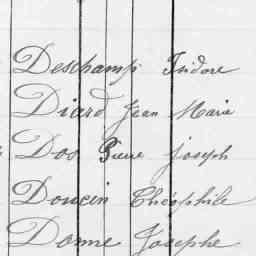 Deschamps Isidore
Diard Jean Marie
Dos Pierre joseph
Doucin Théophile
Dorme Josephe